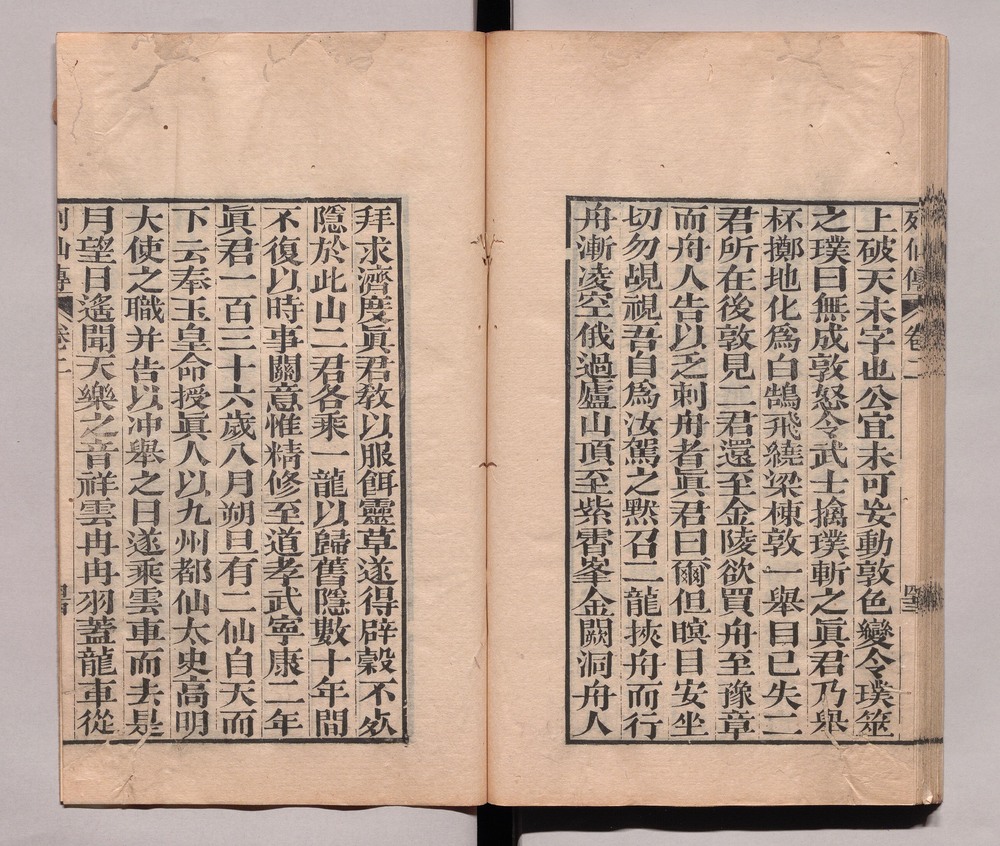 列仙傳 卷二
上破天未字也公宜未可妄動敦色變令璞筮
之璞曰無成敦怒令武士擒璞斬之眞君乃舉
杯擲地化爲白鵠飛繞梁棟敦一舉目已失二
君所在後敦見二君還至金陵欲買舟至豫章
而舟人告以乏刺舟者眞君曰爾但瞑目安坐
切勿覘視吾自爲汝駕之默召二龍挾舟而行
舟漸凌空俄過廬山頂至紫霄峯金闕洞舟人
拜求濟度眞君敎以服餌靈草遂得辟穀不死
隱於此山二君各乘一龍以歸舊隱數十年間
不復以時事關意惟精修至道孝武寧康二年
眞君一百三十六歲八月朔旦有二仙自天而
下云奉玉皇命授眞人以九州都仙太史高明
大使之職并告以冲舉之日遂乘雲車而去是
月望日遙聞天樂之音祥雲冉冉羽蓋龍車從
列仙傳 卷二